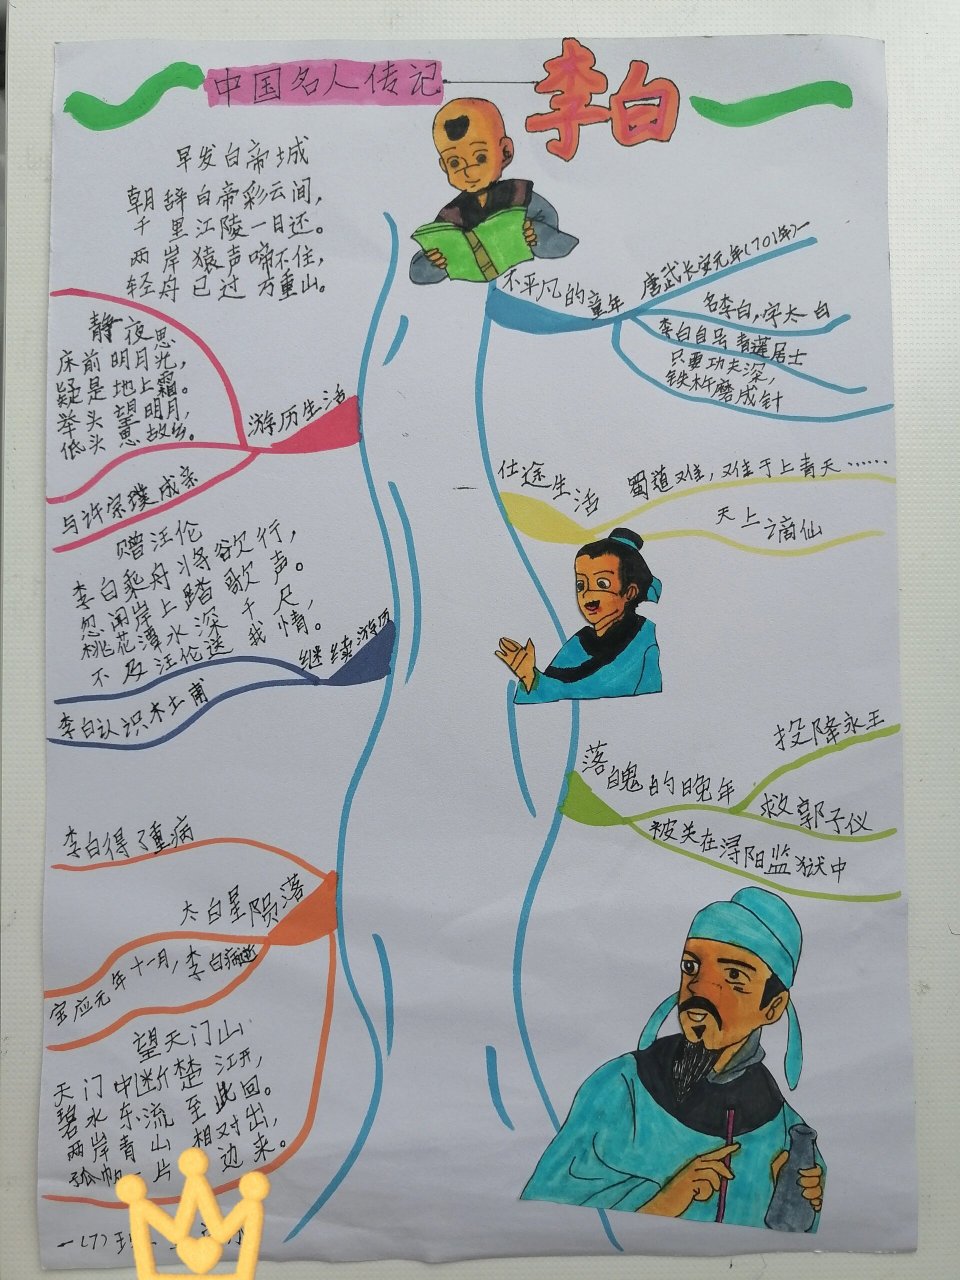 中国名人传记
李白
早发白帝城
朝辞白帝彩云间，
千里江陵一日还。
两岸猿声啼不住，
轻舟已过万重山。
不平凡的童年
唐武长安元年(701年)
名李白，字太白
李白自号青莲居士
只要功夫深，
铁杵磨成针
静夜思
床前明月光，
疑是地上霜。
举头望明月，
低头思故乡。
游历生活
与许宗璞成亲
仕途生活
蜀道难，难于上青天……
天上谪仙
赠汪伦
李白乘舟将欲行，
忽闻岸上踏歌声。
桃花潭水深千尺，
不及汪伦送我情。
继续游历
李白认识杜甫
落魄的晚年
投降永王
救郭子仪
被关在浔阳监狱中
李白得了重病
太白星陨落
宝应元年十一月，李白病逝
望天门山
天门中断楚江开，
碧水东流至此回。
两岸青山相对出，
孤帆一片 边来。
一(7)